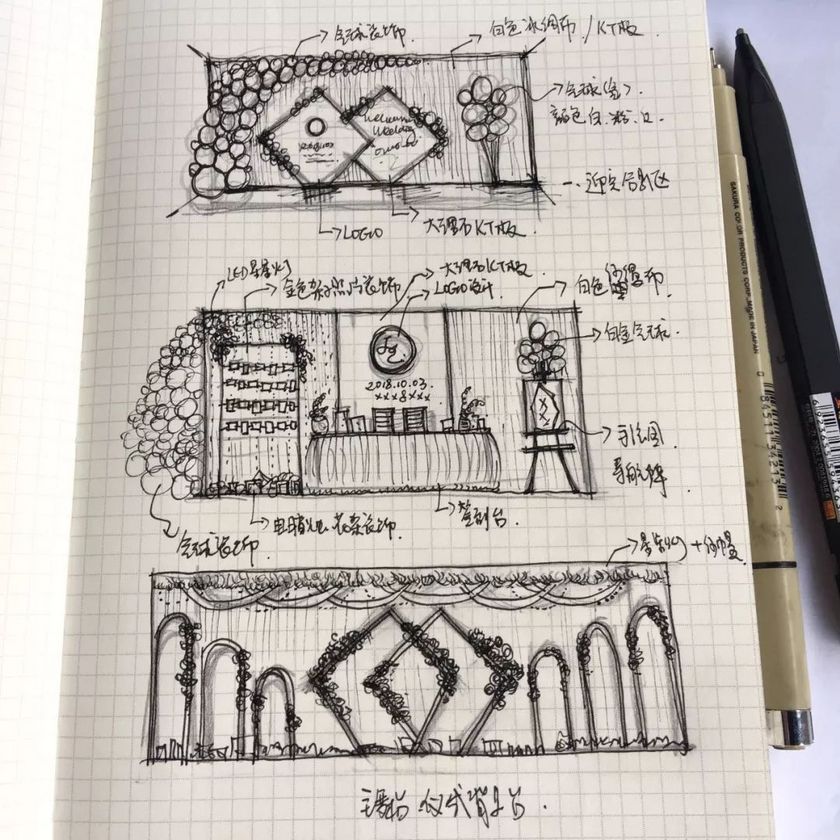 气球装饰
白色冰绸布/KT板
气球(金)
颜色白.粉.
Welcome
Wedding
迎宾合影区
LOGO
大理石KT板
LED星星灯
金色架子照片装饰
大理石KT板
LOGO设计
白色 布
白金气球
2018.10.03.
xxx&xxx
手绘图
气球装饰
电子蜡烛 花艺装饰
签到台
星星灯+纱幔
主舞台 仪式背景
SAKURA COLOR PRODUCTS CORP. MADE IN JAPAN